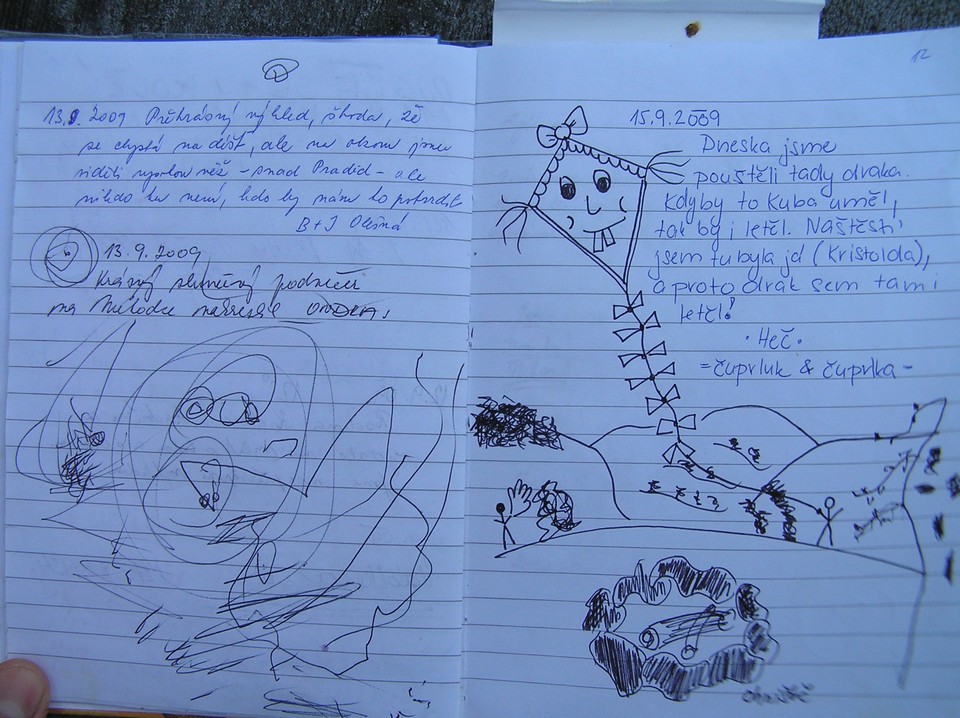 13.9.2009 Překrásný výhled, škoda, že
se chystá na déšť, ale na obzoru jsme
viděli věž - snad Praděd - ale
nikdo tu není, kdo by nám to potvrdil
B+J
13.9.2009
Krásný slunečný podvečer
na
12
15.9.2009
Dneska jsme
pouštěli tady draka.
Kdyby to Kuba uměl,
tak by i letěl. Naštěstí
jsem tu byla já (Kristolda),
a proto drak sem tam i
letěl!
• Heč •
= čuprluk & čuprlka -